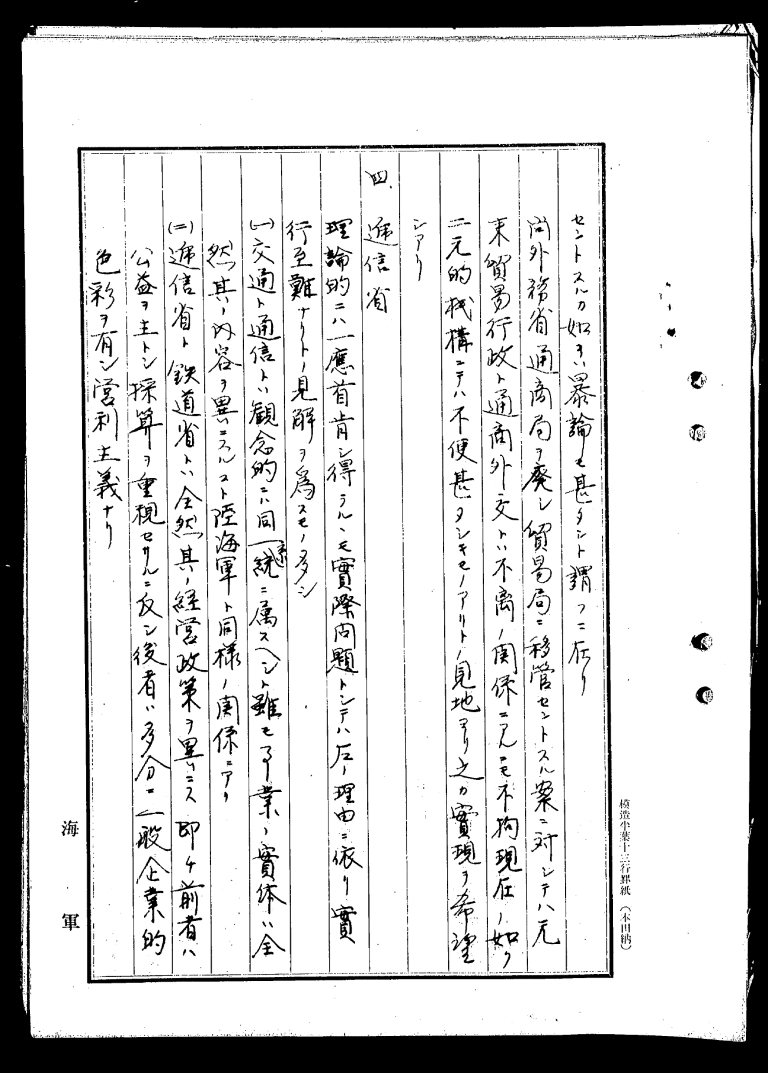 セントスルカ如キハ暴論モ甚タシト謂フニ在リ
尚外務省通商局ヲ廃シ貿易局ニ移管セントスル案ニ対シテハ元
来貿易行政ト通商外交トハ不離ノ関係ニアルニモ不拘現在ノ如ク
二元的機構ニテハ不便甚タシキモノアリトノ見地ヨリ之カ實現ヲ希望
シアリ
四、逓信省
理論的ニハ一應首肯シ得ラルヽモ實際問題トシテハ左ノ理由ニ依リ實
行至難ナリトノ見解ヲ爲スモノ多シ
(一)交通ト通信トハ観念的ニハ同一系統ニ属スヘシト雖モ事業ノ實体ハ全
然其ノ内容ヲ異ニスルコト陸海軍ト同様ノ関係ニアリ
(二)逓信省ト鉄道省トハ全然其ノ経営政策ヲ異ニス即チ前者ハ
公益ヲ主トシ採算ヲ重視セサルニ反シ後者ハ多分ニ一般企業的
色彩ヲ有シ営利主義ナリ
海軍
模造半葉十三行罫紙(本田納)